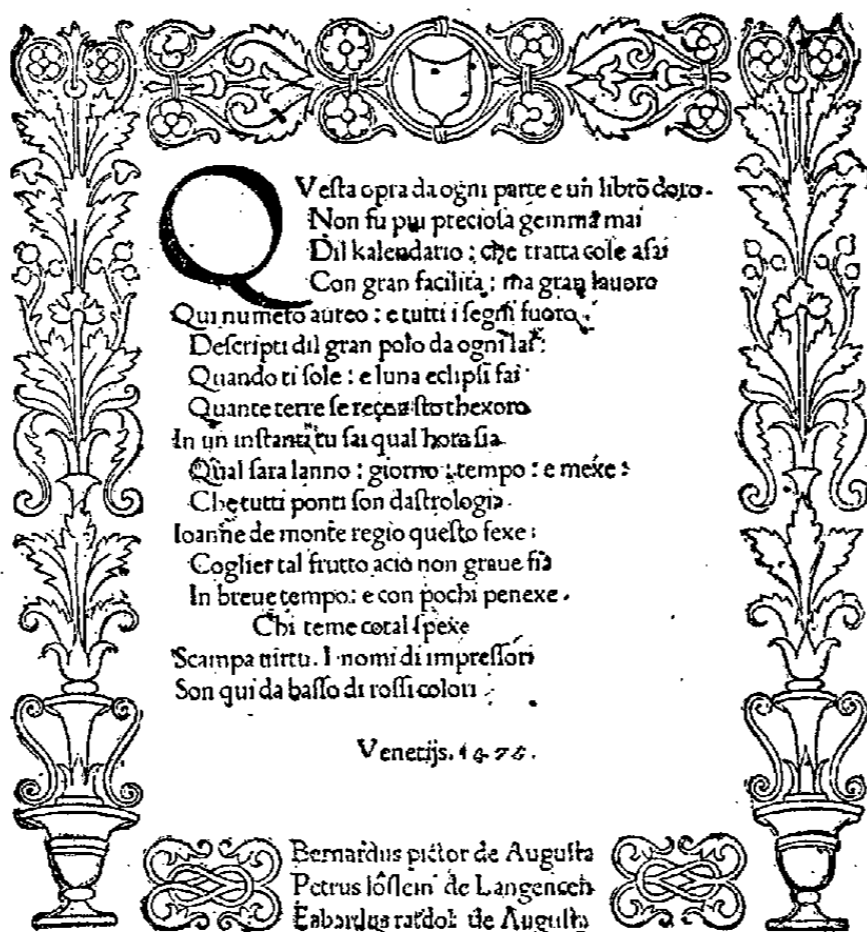 QVesta opra da ogni parte e un libro doro.
Non fu piu preciosa gemma mai
Dil kalendario : che tratta cose asai
Con gran facilita : ma gran lauoro
Qui numero aureo : e tutti i segni fuoro
Descripti dil gran polo da ogni lai :
Quando ti sole : e luna eclipsi fai
Quante terre se rege sto thexoro
In un instanti tu sai qual hora sia
Qual sara lanno : giorno : tempo : e mexe :
Che tutti ponti son dastrologia.
Ioanne de monte regio questo fexe :
Coglier tal frutto acio non graue fia
In breue tempo : e con pochi penexe.
Chi teme cotal spexe
Scampa uirtu. I nomi di impressori
Son qui da basso di rossi colori
Venetijs. 1476.
Bernardus pictor de Augusta
Petrus löslein de Langencen
Erhardus ratdolt de Augusta